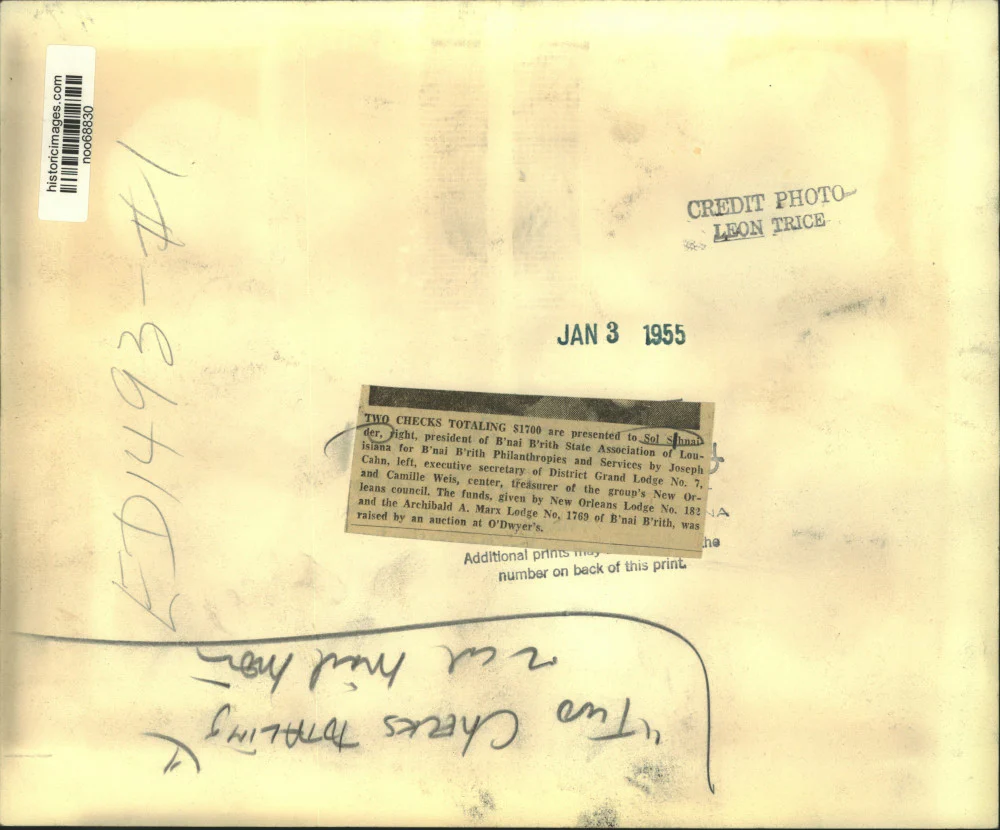 historicimages.com
noo68830
ED1493-#1
CREDIT PHOTO
LEON TRICE
JAN 3 1955
TWO CHECKS TOTALING $1700 are presented to Sol Schnai-
der, right, president of B'nai B'rith State Association of Lou-
isiana for B'nai B'rith Philanthropies and Services by Joseph
Cahn, left, executive secretary of District Grand Lodge No. 7,
and Camille Weis, center, treasurer of the group's New Or-
leans council. The funds, given by New Orleans Lodge No. 182
and the Archibald A. Marx Lodge No. 1769 of B'nai B'rith, was
raised by an auction at O'Dwyer's.
Additional prints may he
number on back of this print.
"Two Checks TOTALING
2 col